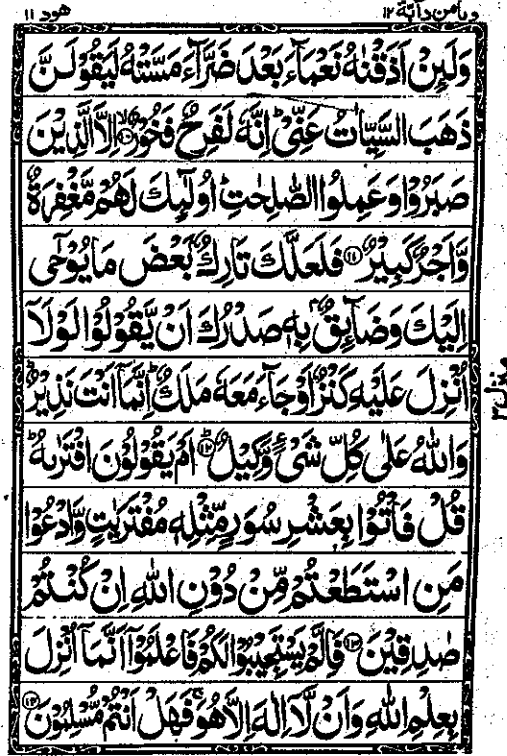 ومامن دآبة ۱۲
هود ۱۱
وَلَئِنْ اَذَقْنٰهُ نَعْمَآءَ بَعْدَ ضَرَّآءَ مَسَّتْهُ لَیَقُوْلَنَّ
ذَهَبَ السَّیِّاٰتُ عَنِّیْ ؕ اِنَّهٗ لَفَرِحٌ فَخُوْرٌ ۙ۱۰ اِلَّا الَّذِیْنَ
صَبَرُوْا وَعَمِلُوا الصّٰلِحٰتِ ؕ اُولٰٓئِكَ لَهُمْ مَّغْفِرَةٌ
وَّاَجْرٌ كَبِیْرٌ ۱۱ فَلَعَلَّكَ تَارِكٌۢ بَعْضَ مَا یُوْحٰۤی
اِلَیْكَ وَضَآئِقٌۢ بِهٖ صَدْرُكَ اَنْ یَّقُوْلُوْا لَوْلَاۤ
اُنْزِلَ عَلَیْهِ كَنْزٌ اَوْ جَآءَ مَعَهٗ مَلَكٌ ؕ اِنَّمَاۤ اَنْتَ نَذِیْرٌ ؕ
وَاللّٰهُ عَلٰی كُلِّ شَیْءٍ وَّكِیْلٌ ؕ۱۲ اَمْ یَقُوْلُوْنَ افْتَرٰىهُ ؕ
قُلْ فَاْتُوْا بِعَشْرِ سُوَرٍ مِّثْلِهٖ مُفْتَرَیٰتٍ وَّادْعُوْا
مَنِ اسْتَطَعْتُمْ مِّنْ دُوْنِ اللّٰهِ اِنْ كُنْتُمْ
صٰدِقِیْنَ ۱۳ فَاِلَّمْ یَسْتَجِیْبُوْا لَكُمْ فَاعْلَمُوْۤا اَنَّمَاۤ اُنْزِلَ
بِعِلْمِ اللّٰهِ وَاَنْ لَّاۤ اِلٰهَ اِلَّا هُوَ ۚ فَهَلْ اَنْتُمْ مُّسْلِمُوْنَ ۱۴
منزل ۳